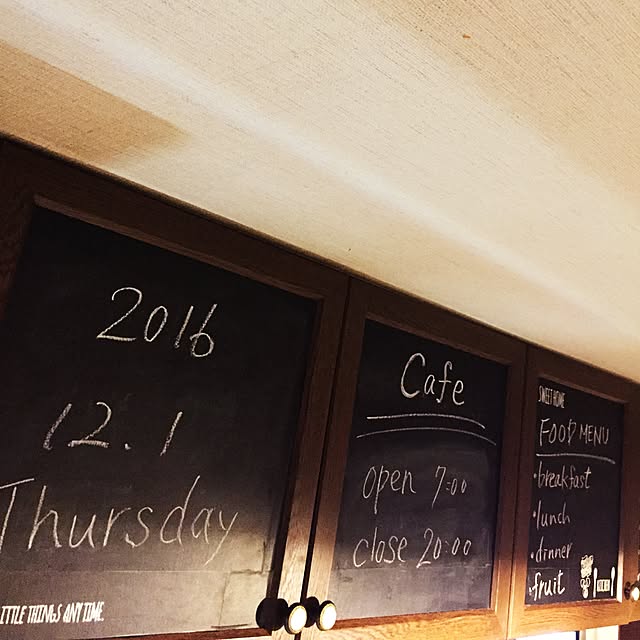 2016
12.1
Thursday
LITTLE THINGS ANY TIME.
Cafe
open 7:00
close 20:00
SWEET HOME
FOOD MENU
・breakfast
・lunch
・dinner
・fruit